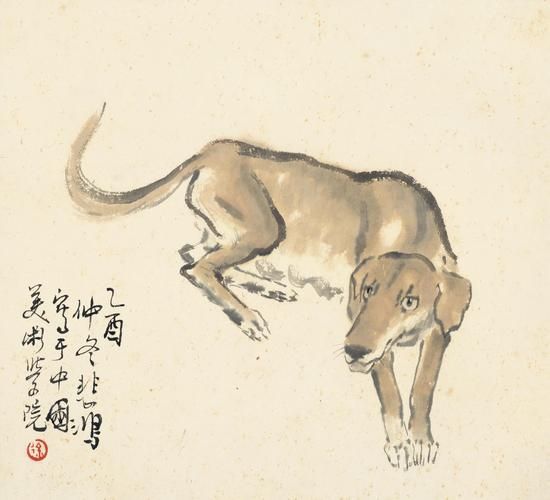 乙酉
仲冬悲鸿
写于中國
美術學院